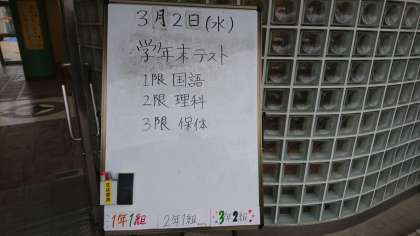 3月2日(水)
学年末テスト
1限 国語
2限 理科
3限 保体
1年1組
2年1組
3年2組